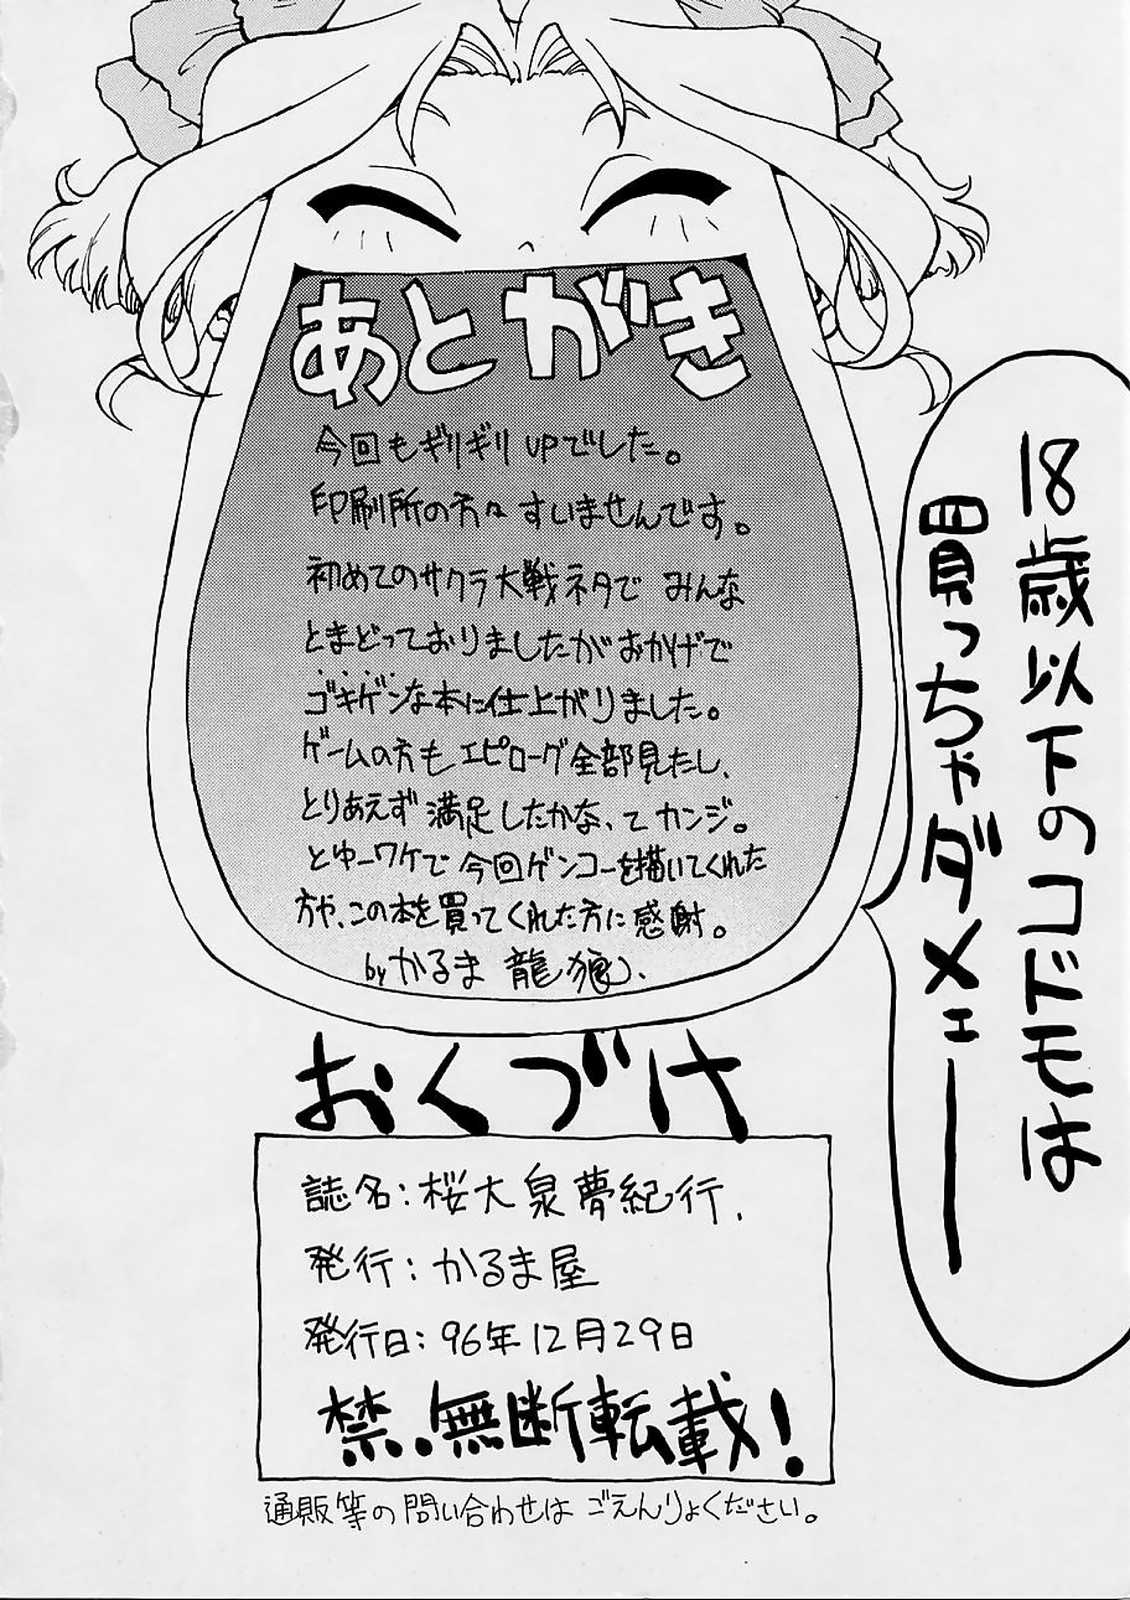 あとがき
今回もギリギリUPでした。
印刷所の方々すいませんです。
初めてのサクラ大戦ネタでみんな
とまどっておりましたがおかげで
ゴキゲンな本に仕上がりました。
ゲームの方もエピローグ全部見たし、
とりあえず満足したかな、てカンジ。
とゆーワケで今回ゲンコーを描いてくれた
方や、この本を買ってくれた方に感謝。
byかるま龍狼.
18歳以下のコドモは
買っちゃダメェー
おくづけ
誌名:桜大泉夢紀行.
発行:かるま屋
発行日:96年12月29日
禁.無断転載!
通販等の問い合わせはごえんりょください。